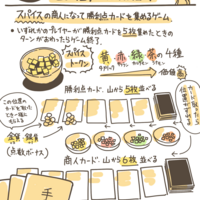 スパイスの商人になって勝利点カードを集めるゲーム。
・いずれかのプレイヤーが勝利点カードを5枚集めたときの
ターンがおわったらゲーム終了。
スパイス
トークン
黄 赤 緑 茶 の4種
価値高
勝利点カード、山から5枚並べる
この位置の
カードを取った
とき一緒に
もらえる
金貨 銀貨
(点数ボーナス)
商人カード、山から6枚並べる
手